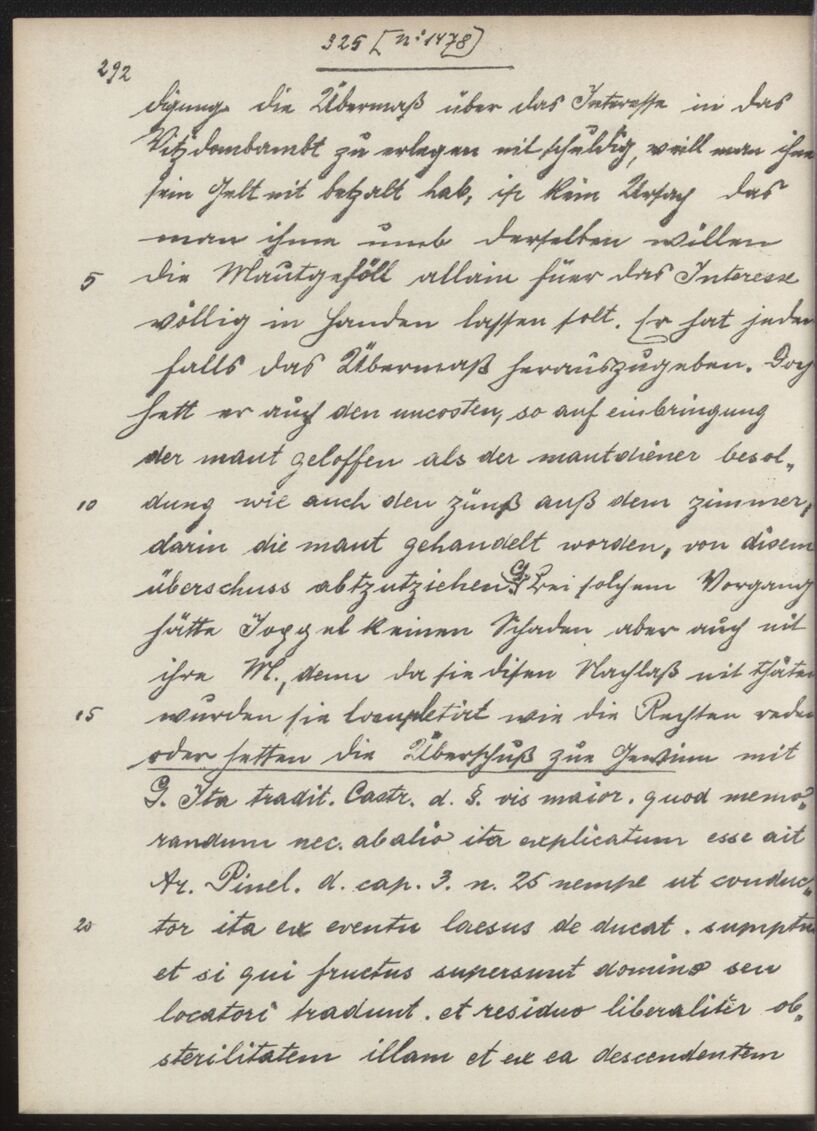 325 [N: 1478]
292
digung die Übermaß über das Interesse in das
Vitzdombambt zu erlegen nit schuldig, weill man ihm
sein Gelt nit betzalt hab, ist kein Ursach das
man ihme umb derselben willen
5 die Mautgefäll allain füer das Interesse
völlig in Handen lassen solt. Er hat jeden
falls das Übermaß herauszugeben. Doch
hett er auch den uncosten, so auf einbringung
der maut geloffen als der mautdiener besol„
10 dung wie auch den zünß auß dem zimmer,
darin die maut gehandelt worden, von disem
überschuss abtzutziehen. G. Bei solchem Vorgang
hätte Joppel keinen Schaden aber auch nit
ihre M., denn da sie disen Nachlaß nit thäten
15 wurden sie locupletirt wie die Rechten reden
oder hetten die Überschuß zue Gewinn mit
G. Ita tradit. Castr. d. §. vis maior. quod memo„
randum nec. ab alio ita explicatum esse ait
Ar. Pinel. d. cap. 3. n. 25 nempe ut conduc„
20 tor ita ex eventu laesus deducat. sumptu
et si qui fructus supersunt domino seu
locatori tradunt. et residuo liberaliter ob„
sterilitatem illam et ex ea descendentem